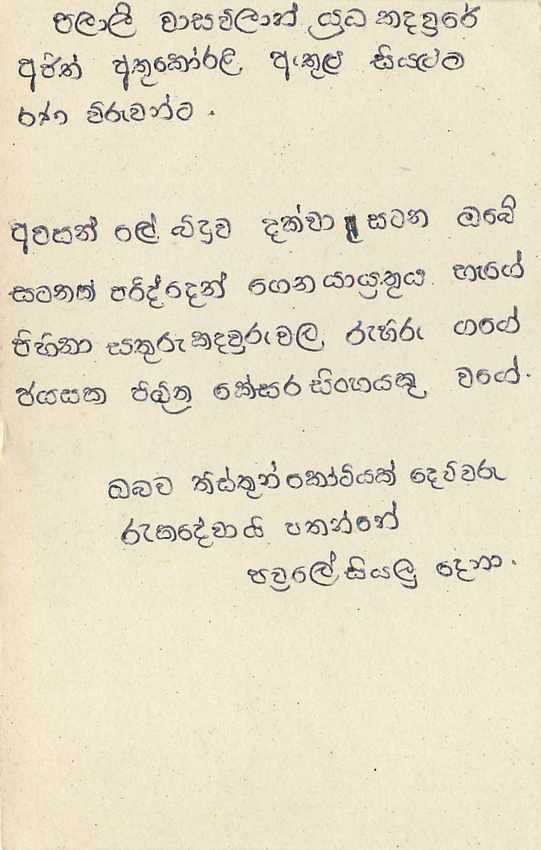 පලාලි වාසවිලාන් යුධ කදවුරේ
අජිත් අතුකෝරළ, ඇතුළු සියළුම
රණ විරුවන්ට .
අවසන් ලේ බිදුව දක්වා සටන ඔබේ
සටනත් පරිද්දෙන් ගෙනයායුතුය හැගේ
පිහිනා සතුරු කදවුරුවල, රුහිරු ගගේ
ජයගෙන කේසර සිංහයකු වගේ.
ඔබට තිස්තුන්කෝටියක් දෙවිවරු
රැකදේවායි පතන්නේ
පවුලේ සියලු දෙනා.